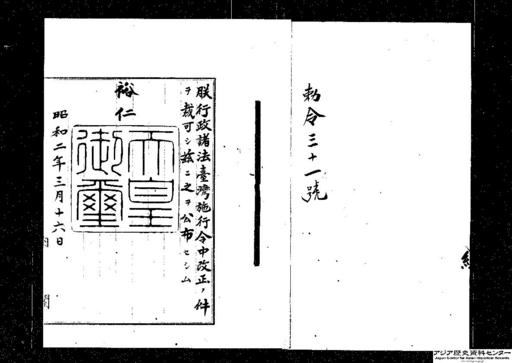 勅令三十一號
朕行政諸法臺灣施行令中改正ノ件
ヲ裁可シ茲ニ之ヲ公布セシム
裕仁
天皇
御璽
昭和二年三月十六日
内閣
アジア歴史資料センター
Japan Center for Asian Historical Records